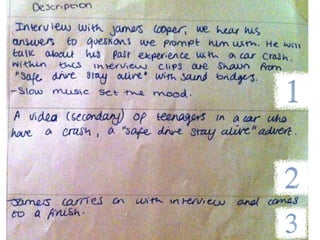 Description
Interview with james cooper, we hear his
answers to questions we prompt him with. He will
talk about his past experience with a car crash.
within this interview clips are shown from
"safe drive stay alive" with sound bridges.
-Slow music set the mood.
1
A video (secondary) of teenagers in a car who
have a crash, a "safe drive stay alive" advert.
2
James carries on with interview and comes
to a finish.
3